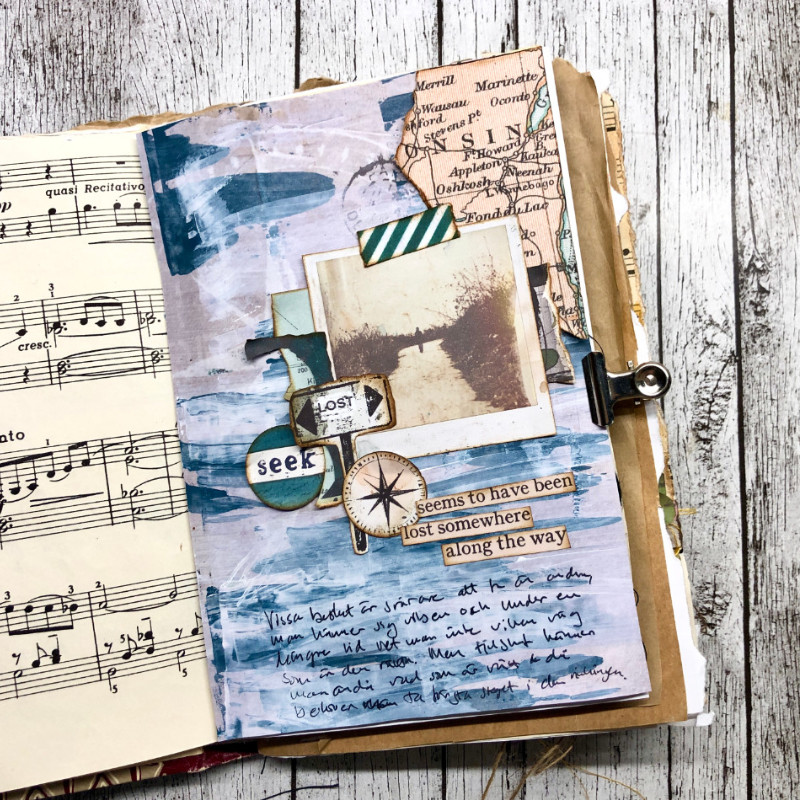 quasi Recitativo
cresc.
Merrill Marinette
Wausau Oconto
ford Stevens Pt
ONSIN
Ft Howard
Appleton Kauka
Neenah
Oshkosh L. Winnebago
Fond du Lac
LOST
seek
seems to have been
lost somewhere
along the way
Vissa beslut är svårare att ta än andra,
man känner sig vilsen och under en
längre tid vet man inte vilken väg
som är den rätta. Men tillslut känner
man ändå vad som är rätt & då
behöver man ta första steget i den riktningen.